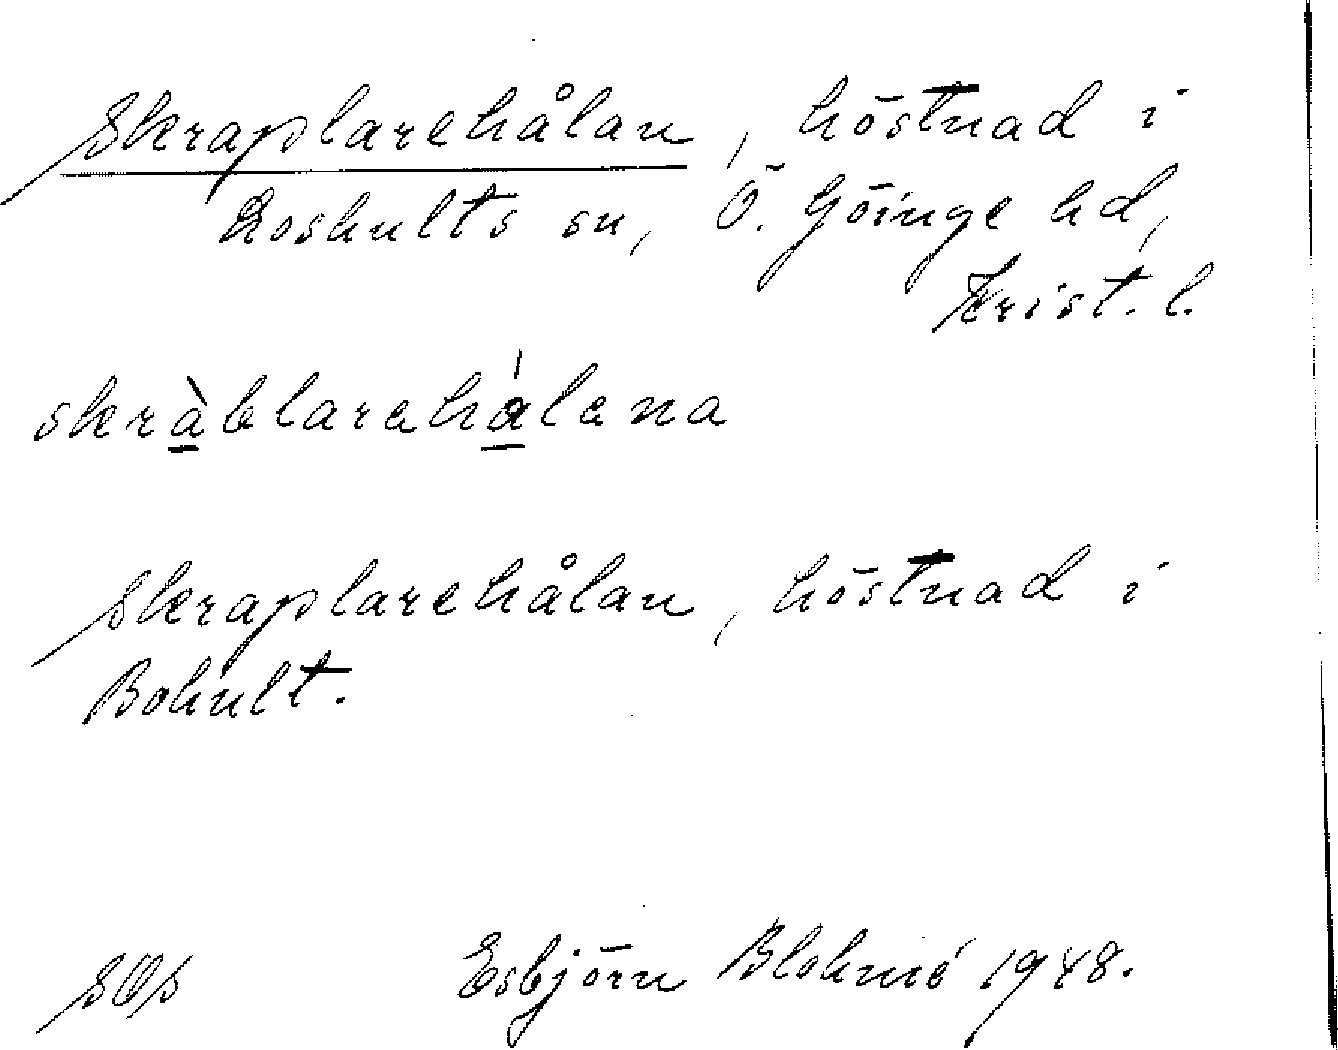 Skraplarehålan, höstnad i
Loshults sn, Ö. Göinge hd,
Krist. l.
skràblarehálena
Skraplarehålan, höstnad i
Bohult.
Esbjörn Blohmé 1948.